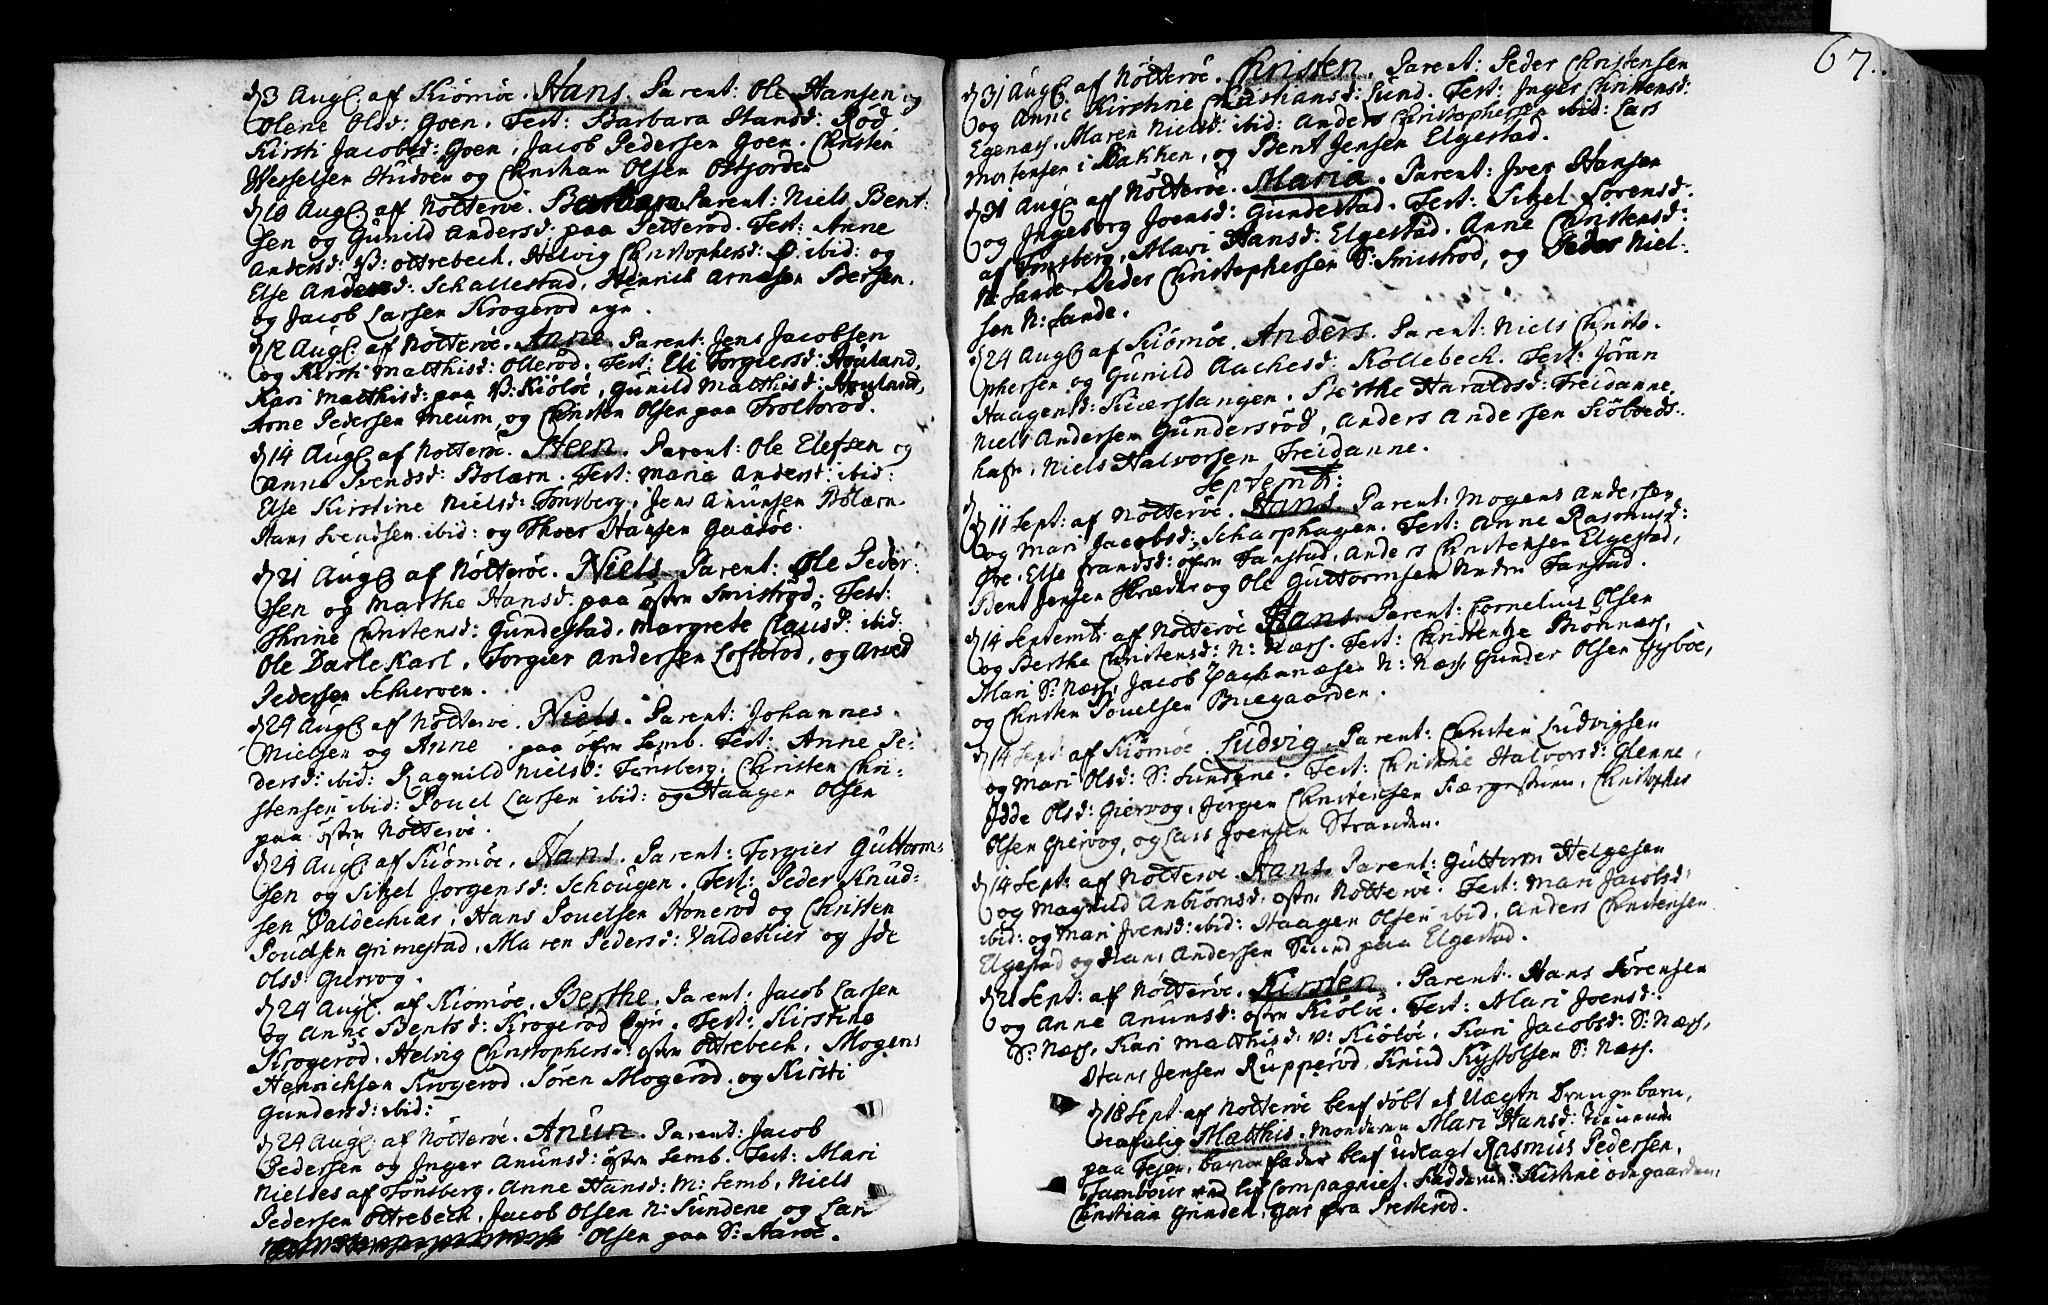 d 3 Aug: af Kiömöe. Hans. Parent: Ole Hansen og
Olene Olsd: Goen. Test: Barbara Hansd: Röd
Kirsti Jacobsd: Goen, Jacob Pedersen Goen. Christen
Wesselsen Hudöen og Christian Olsen Östjorden
d 10 Aug: af Nötteröe. Barbara Parent: Niels Bent:
sen og Gunild Andersd: paa Petteröd. Test: Anne
Andersd: V: Ottrebech, Helvig Christophersd: Ø: ibid: og
Else Andersd: Schallestad, Henrich Arnesen Bersen.
og Jacob Larsen Krogeröd eÿe.
d 12 Aug: af Nötteröe. Anne. Parent: Jens Jacobsen
og Kirsti Matthisd: Olleröd. Test: Eli Torgiersd: Houland,
Kari Matthisd: paa V: Kiölöe, Gunild Matthisd: Houland,
Arne Pedersen Meum, og Christen Olsen paa Troltaröd.
d 14 Aug: af Nötteröe. Steen. Parent: Ole Elefsen og
Anne Svendsd: Bolærn. Test: Maria Andersd: ibid:
Else Kirstine Nielsd: Tönsberg, Jens Anunsen Bolærn.
Hans Svendsen ibid: og Thoer Hansen Gaasöe.
d 21 Aug: af Nötteröe. Niels Parent: Ole Peder:
sen og Marthe Hansd: paa östre Smiströd. Test:
Thrine Christensd: Gundestad, Margrete Clausd: ibid:
Ole Darle Karl, Torgier Andersen Lofteröd, og Arved
Pedersen Schierven.
d 24 Aug: af Nötteröe. Niels. Parent: Johannes
Nielsen og Anne . paa öfre Semb. Test: Anne Pe:
dersd: ibid: Ragnild Nielsd: Tönsberg, Christen Chri:
stensen ibid: Pouel Larsen ibid: og Haagen Olsen
paa östre Nötteröe.
d 24 Aug: af Kiömöe. Hans. Parent: Torgier Guttorm:
sen og Sitzel Jörgensd: Schougen. Test: Peder Knud:
sen Valdechier, Hans Pouelsen Honeröd og Christen
Pouelsen Grimestad, Maren Pedersd: Valdekier og Ide
Olsd: Giervog.
d 24 Aug: af Kiömöe. Berthe. Parent: Jacob Larsen
og Anne Bentsd: Krogeröd Eÿe. Test: Kirstine
Krogeröd, Helvig Christophersd: östre Ottrebech, Mogens
Henrichsen Krogeröd. Sören Mogeröd. og Kirsti
Gundersd: ibid:
d 24 Aug: af Nötteröe. Anun. Parent: Jacob
Pedersen og Inger Anunsd: östre Semb. Test: Mari
Nieldes af Tönsberg. Anne Hansd: M: Semb, Niels
Pedersen Ottrebech, Jacob Olsen N: Sundene og Lars
Olsen paa S: Aaröe.
67.
d 31 Aug: af Nötteröe. Christen. Parent: Peder Christensen
og Anne Kirstine Christiansd: Lund. Test: Inger Christensd:
Egenæss, Maren Nielsd: ibid: Anders Christophersen ibid: Lars
Mortensen i Bakken, og Bent Jensen Elgestad.
d 31 Aug: af Nötteröe. Maria. Parent: Iver Hansen
og Ingeborg Joensd: Gundestad. Test: Sitzel Sörensd:
af Tönsberg, Mari Hansd: Elgestad. Anne Christensd:
N: Sande. Peder Christophersen S: Smiströd, og Peder Niel:
sen N: Sande.
d 24 Aug: af Kiömöe. Anders. Parent: Niels Christo:
phersen og Gunild Aachesd: Kollebech. Test: Jöran
Haagensd: Kuerstangen. Berthe Haraldsd: Treidanne,
Niels Andersen Gundersröd, Anders Andersen Kiöbveds:
hafn, Niels Halvorsen Treidanne.
Septemb:
d 11 Sept: af Nötteröe. Hans. Parent: Mogens Andersen,
og Mari Jacobsd: Scharphagen. Test: Anne Rasmusd:
Öre. Else Frandsd: öfre Fanstad, Anders Christensen Elgestad,
Bent Jensen Skræder og Ole Guttormsen Neden Fanstad.
d 14 Septemb: af Nötteröe Hans. Parent: Cornelius Olsen
og Berthe Christensd: N: Næss. Test: Christentze Bönnæss,
Mari S: Næss, Jacob Zachariæsen N: Næss, Gunder Olsen Gyböe,
og Christen Pouelsen Buegaarden.
d 14 Sept: af Kiömöe. Ludvig. Parent: Christen Ludvigsen
og Mari Olsd: S: Sundene. Test: Christine Halvorsd: Glenne,
Idde Olsd: Giervog, Jörgen Christensen Færgestrun, Christopher
Olsen Giervog, og Lars Joensen Stranden.
d 14 Sept: af Nötteröe. Hans. Parent: Guttorm Helgesen
og Magnild Anbiörnsd: östre Nötteröe. Test: Mari Jacobsd:
ibid: og Mari Ivensd: ibid: Haagen Olsen ibid. Anders Christensen
Elgestad og Hans Andersen Suend paa Elgestad.
d 21 Sept: af Nötteröe. Kirsten. Parent: Hans Sörensen
og Anne Anunsd: östre Kiölöe. Test: Mari Joensd:
S: Næss, Kari Matthisd: V: Kiölöe, Kari Jacobsd: S: Næss,
Hans Jensen Rupperöd, Knud Kystolsen S: Næss.
d 18 Sept: af Nötteröe blef döbt et Uægte Drengebarn,
nafnlig Matthis. Moderen Mari Hansd: tienende
paa Teÿen, barnefader blef udlagt Rasmus Pedersen,
Tambour ved Lif Compagniet. Fadderne: Kistine Ödegaarden,
Christian Grinden, gar fra Presteröd.